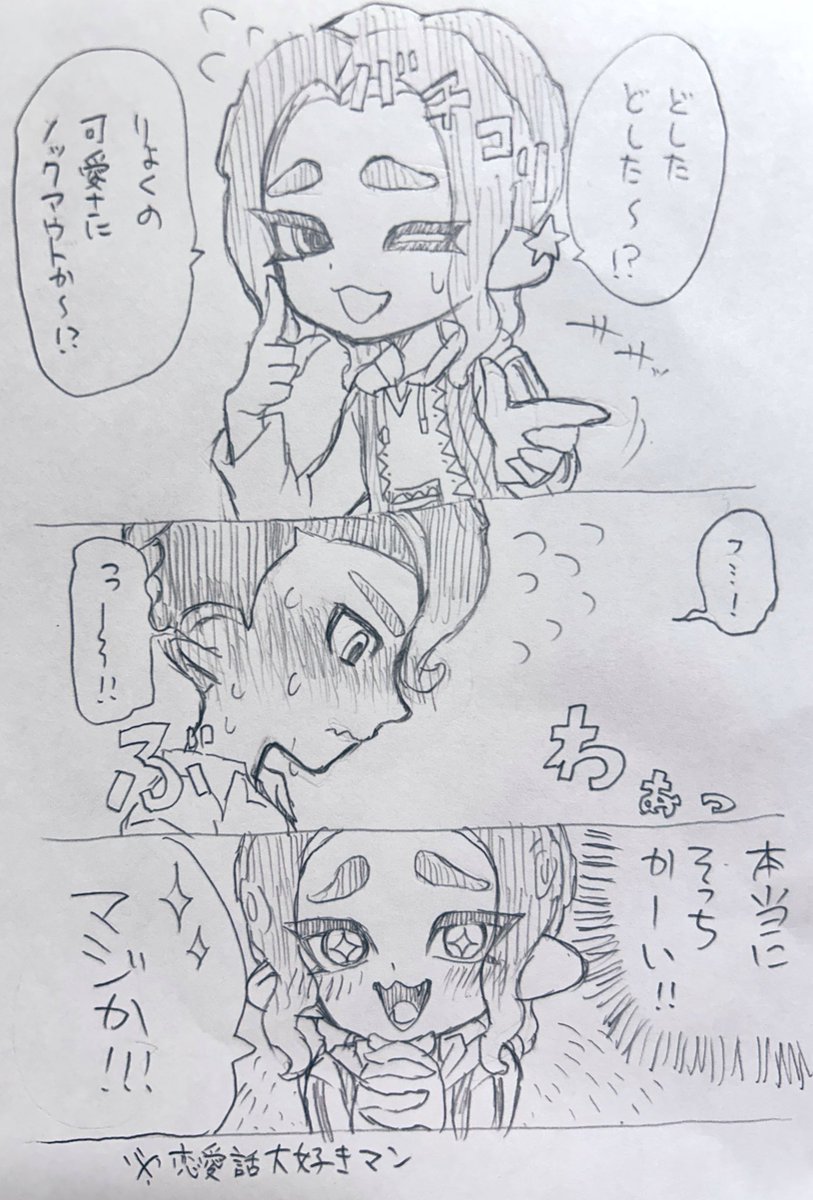 どした
どした～!?
バチコリ
りょくの
可愛さに
ノックアウトか～!?
サササッ
フ…!
うー～!!
ぶわぁっ
本当に
そっち
かーい!!
マジか!!!
※恋愛話大好きマン